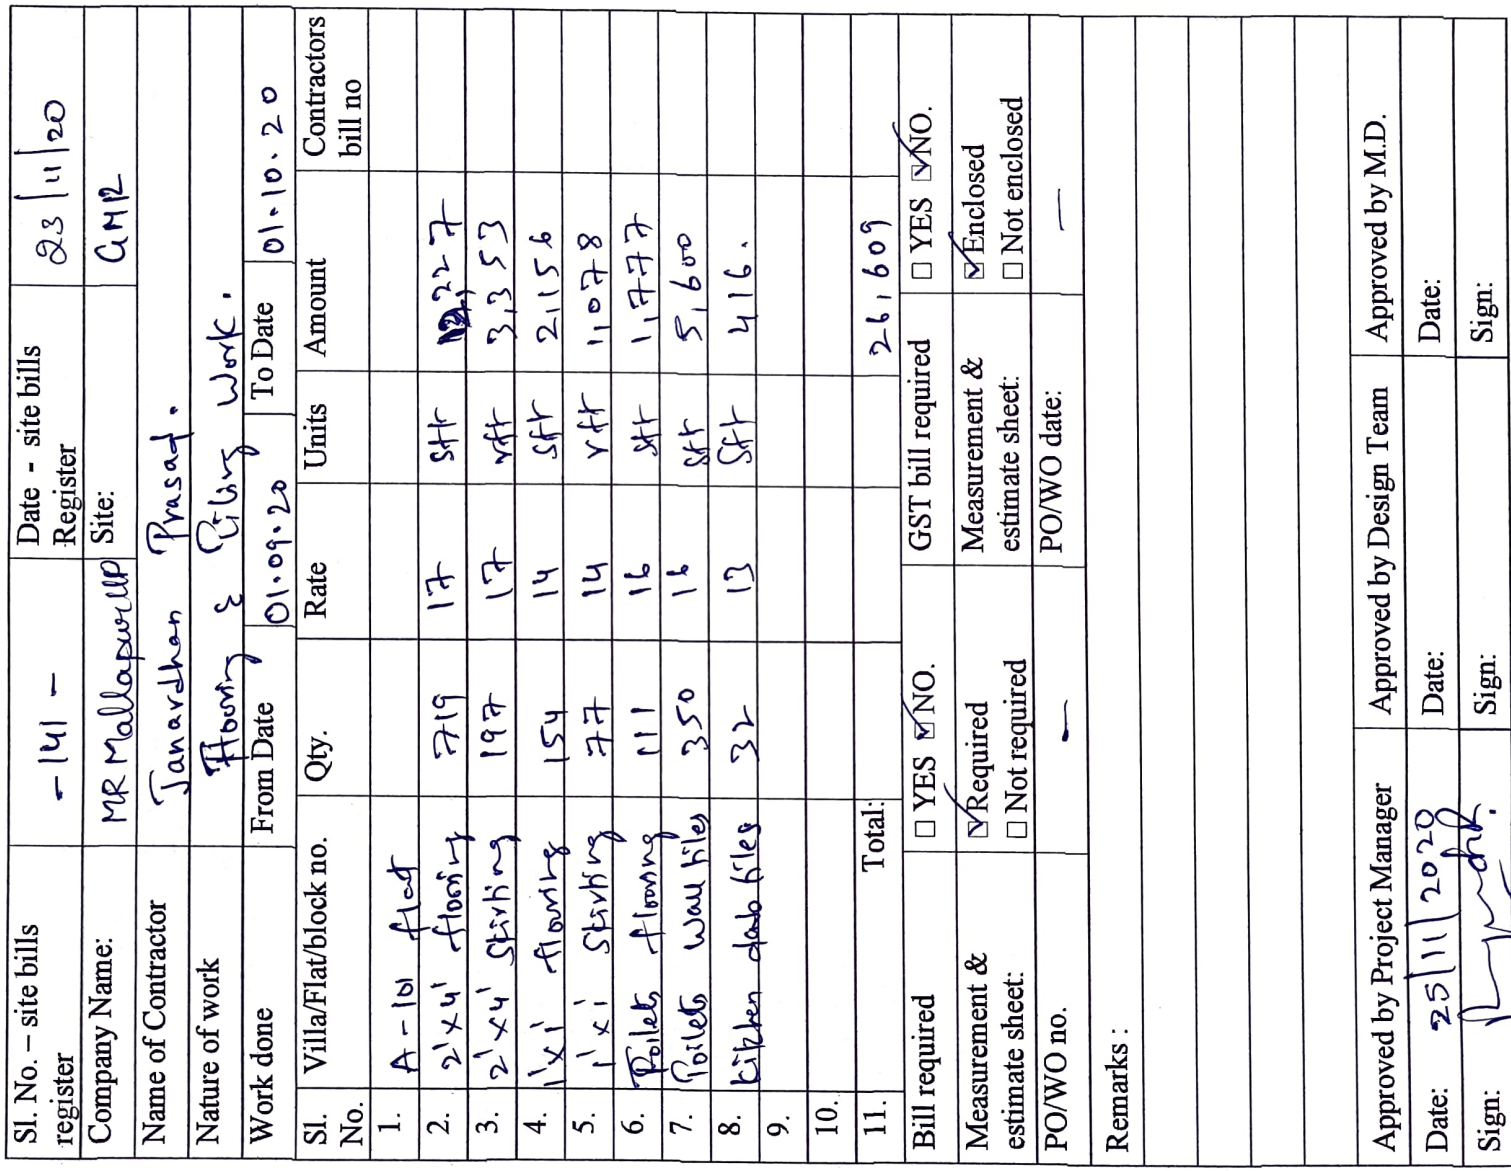 Sl. No. – site bills register - 141 - Date - site bills Register 23/11/20
Company Name: MR Mallapur LLP Site: GMR
Name of Contractor Janardhan Prasad.
Nature of work Flooring & Tiling Work.
Work done From Date 01.09.20 To Date 01.10.20
Sl. No. Villa/Flat/block no. Qty. Rate Units Amount Contractors bill no
1. A-101 flat
2. 2'x4' flooring 719 17 sft 12,227
3. 2'x4' Skirting 197 17 rft 3,353
4. 1'x1' flooring 154 14 sft 2,156
5. 1'x1' Skirting 77 14 rft 1,078
6. Toilets flooring 111 16 sft 1,777
7. Toilets Wall tiles 350 16 sft 5,600
8. kitchen dado tiles 32 13 Sft 416.
9.
10.
11. Total: 26,609
Bill required ☐ YES ☑ NO. GST bill required ☐ YES ☑ NO.
Measurement & estimate sheet: ☑ Required ☐ Not required Measurement & estimate sheet: ☑ Enclosed ☐ Not enclosed
PO/WO no. — PO/WO date: —
Remarks :
Approved by Project Manager Approved by Design Team Approved by M.D.
Date: 25/11/2020 Date: Date:
Sign: Sign: Sign: